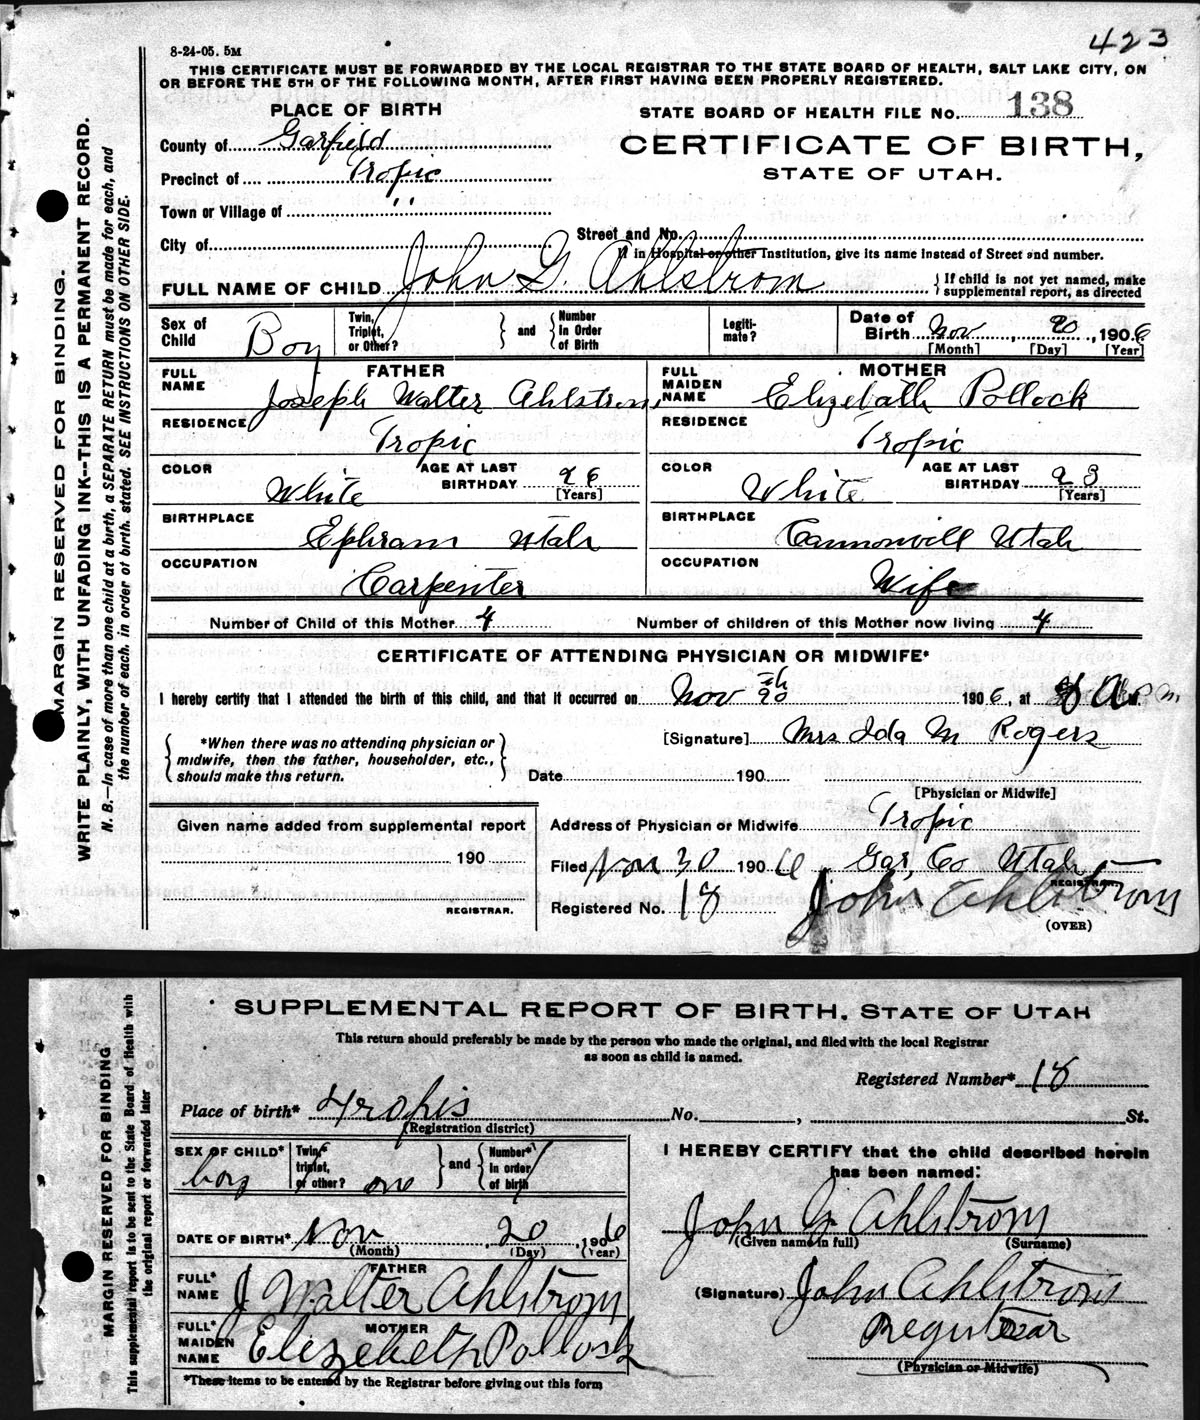 423
8-24-05. 5M
THIS CERTIFICATE MUST BE FORWARDED BY THE LOCAL REGISTRAR TO THE STATE BOARD OF HEALTH, SALT LAKE CITY, ON
OR BEFORE THE 5TH OF THE FOLLOWING MONTH, AFTER FIRST HAVING BEEN PROPERLY REGISTERED.
PLACE OF BIRTH
STATE BOARD OF HEALTH FILE No. 138
County of Garfield
CERTIFICATE OF BIRTH,
Precinct of Tropic
STATE OF UTAH.
Town or Village of "
City of
Street and No.
If in Hospital or other Institution, give its name instead of Street and number.
FULL NAME OF CHILD John G. Ahlstrom
{ If child is not yet named, make
supplemental report, as directed
Sex of Child Boy
Twin, Triplet, or Other? } and { Number in Order of Birth
Legiti-mate?
Date of Birth Nov 20, 1906
[Month] [Day] [Year]
FATHER
FULL NAME Joseph Walter Ahlstrom
MOTHER
FULL MAIDEN NAME Elizebath Pollock
RESIDENCE Tropic
RESIDENCE Tropic
COLOR White
AGE AT LAST BIRTHDAY 26 [Years]
COLOR White
AGE AT LAST BIRTHDAY 23 [Years]
BIRTHPLACE Ephram Utah
BIRTHPLACE Cannonvill Utah
OCCUPATION Carpenter
OCCUPATION Wife
Number of Child of this Mother 4
Number of children of this Mother now living 4
CERTIFICATE OF ATTENDING PHYSICIAN OR MIDWIFE*
I hereby certify that I attended the birth of this child, and that it occurred on Nov 20th 1906, at M.
{ *When there was no attending physician or midwife, then the father, householder, etc., should make this return. }
[Signature] Mrs Ida M Rogers
Date 190
[Physician or Midwife]
Given name added from supplemental report
Address of Physician or Midwife Tropic
190
Filed Nov 30 1906 Gar, Co Utah
REGISTRAR.
Registered No. 18
John Ahlstrom
REGISTRAR.
(OVER)
MARGIN RESERVED FOR BINDING.
WRITE PLAINLY, WITH UNFADING INK--THIS IS A PERMANENT RECORD.
N. B.—In case of more than one child at a birth, a SEPARATE RETURN must be made for each, and
the number of each, in order of birth, stated. SEE INSTRUCTIONS ON OTHER SIDE.
SUPPLEMENTAL REPORT OF BIRTH, STATE OF UTAH
This return should preferably be made by the person who made the original, and filed with the local Registrar
as soon as child is named.
Registered Number* 18
Place of birth* Tropis No. , St.
(Registration district)
SEX OF CHILD* boy
Twin,* triplet, or other? one } and { Number* in order of birth 1
I HEREBY CERTIFY that the child described herein
has been named:
John G. Ahlstrom
(Given name in full) (Surname)
DATE OF BIRTH* Nov 20, 1906
(Month) (Day) (Year)
FATHER
FULL* NAME J Walter Ahlstrom
(Signature) John Ahlstrom
Registrar
MOTHER
FULL* MAIDEN NAME Elizebeth Pollock
(Physician or Midwife)
*These items to be entered by the Registrar before giving out this form
MARGIN RESERVED FOR BINDING
This supplemental report is to be sent to the State Board of Health with
the original report or forwarded later